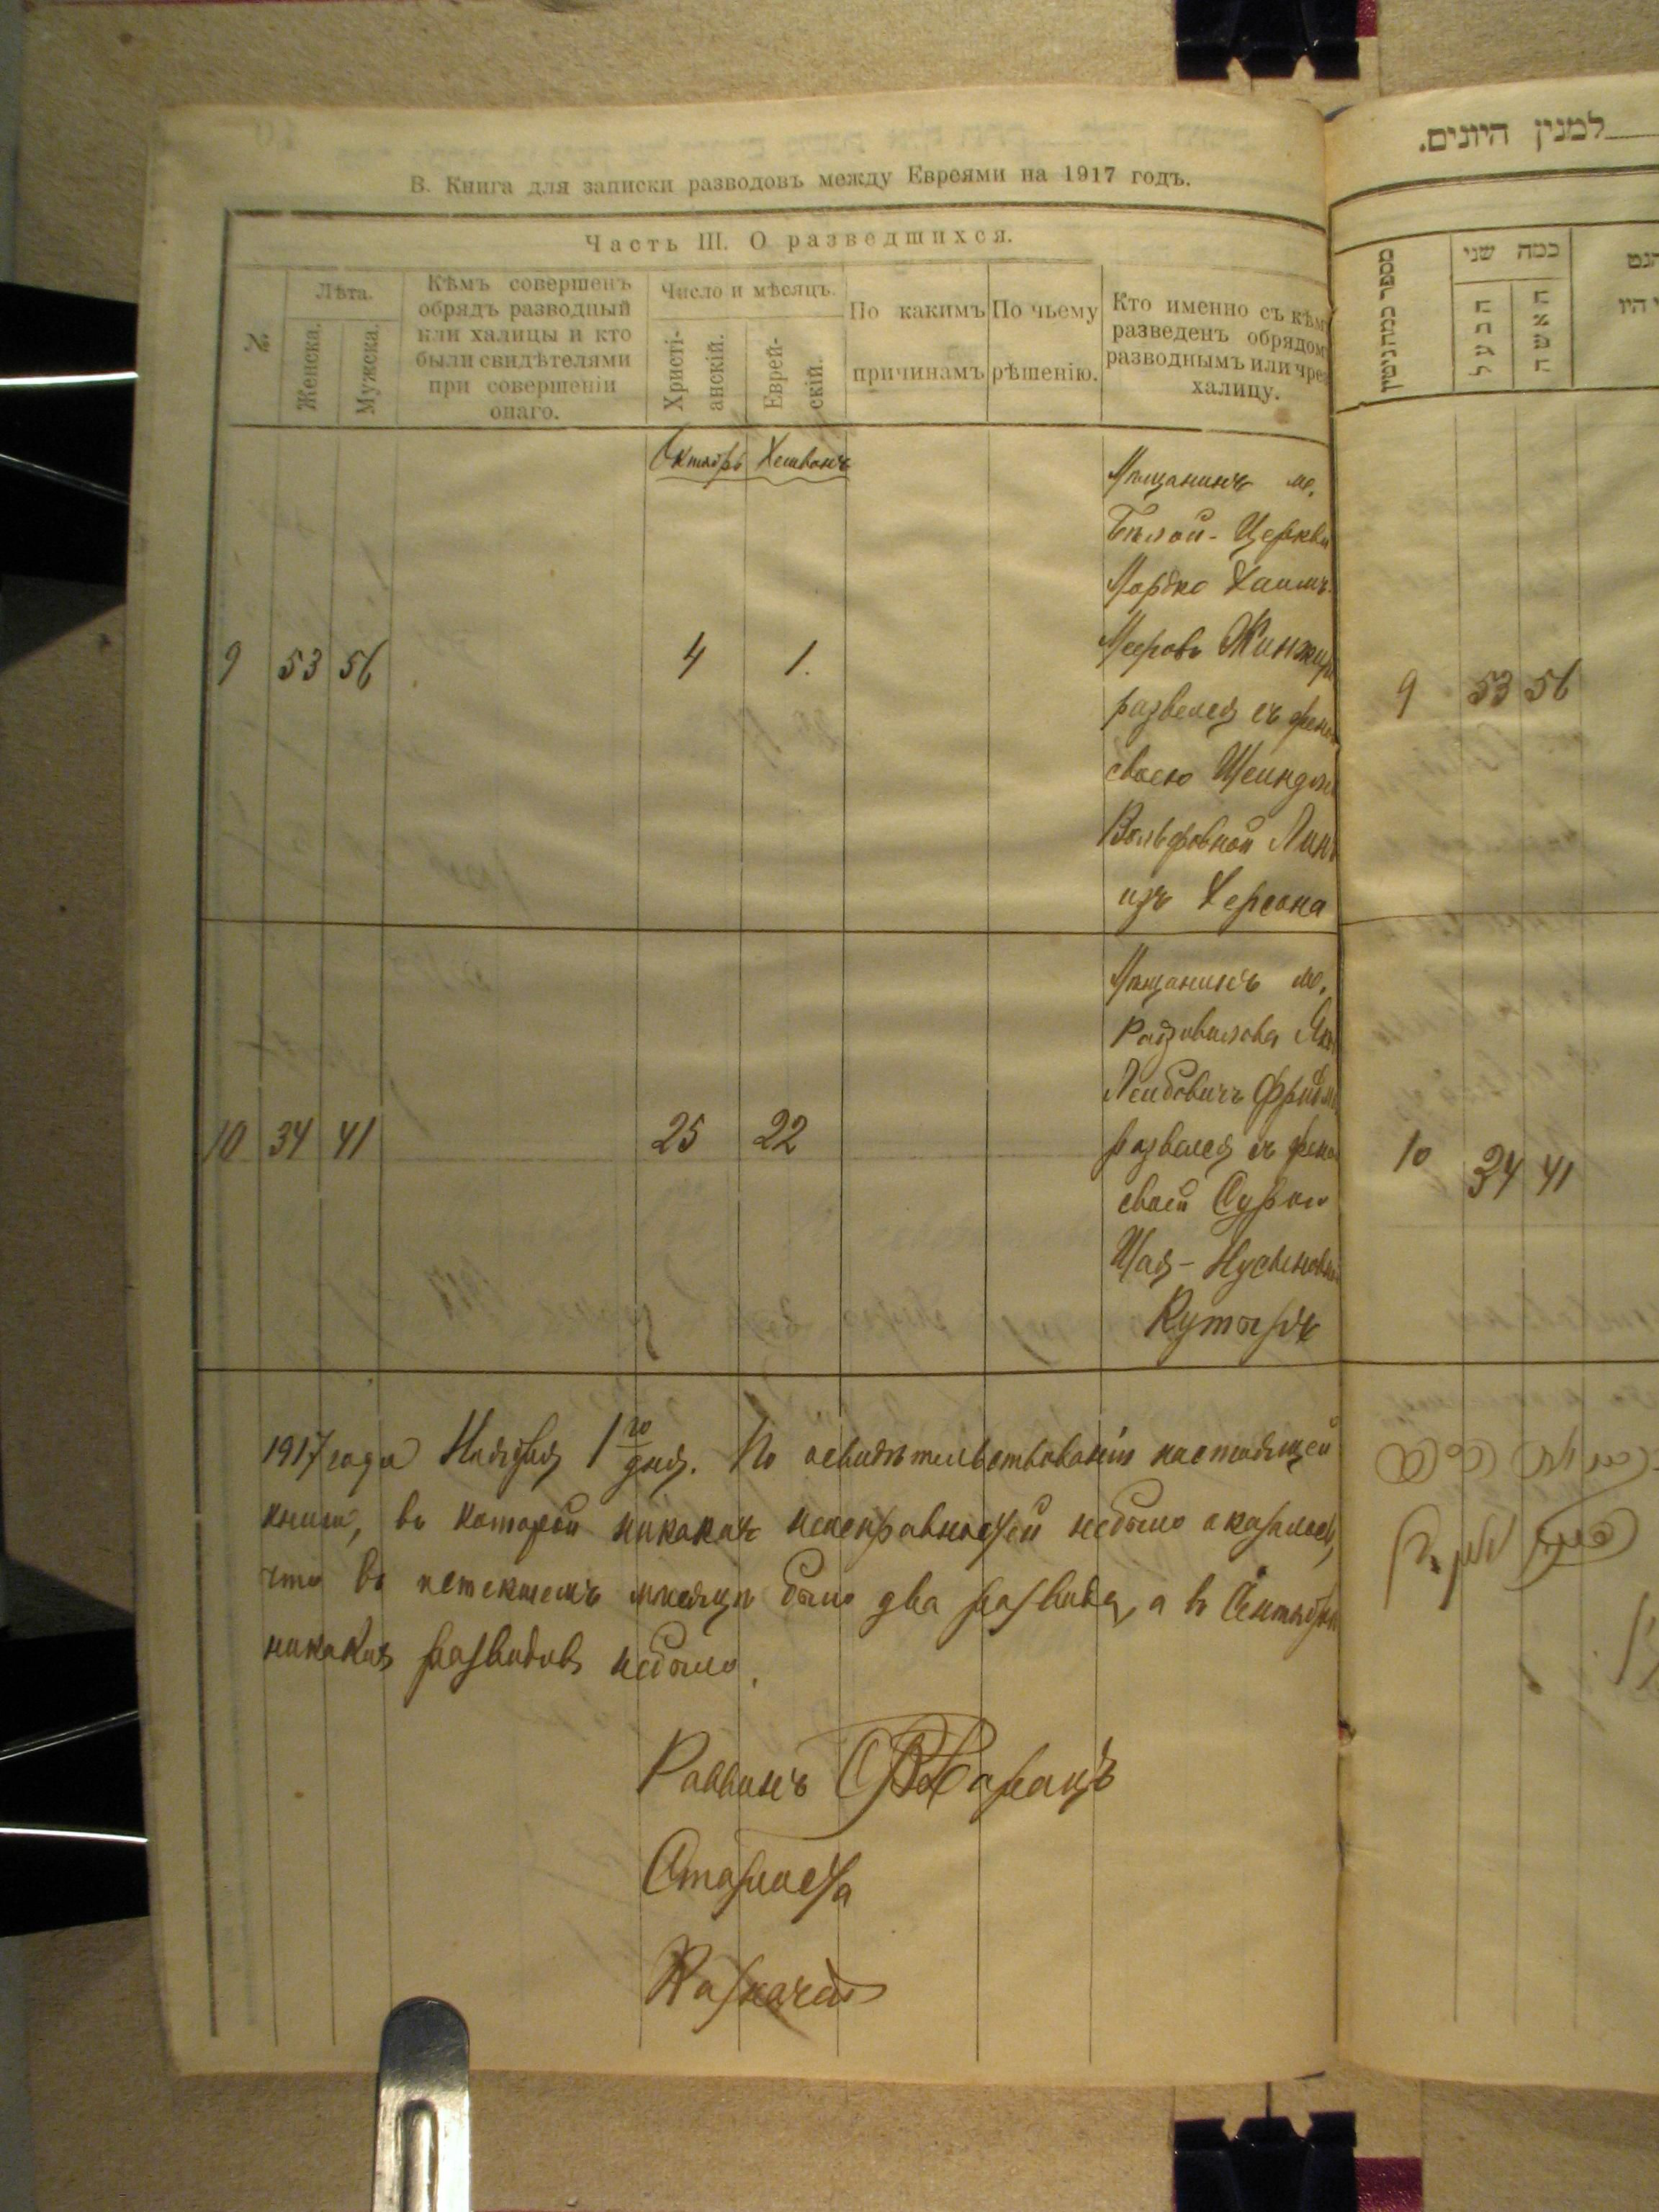 В. Книга для записки разводовъ между Евреями на 1917 годъ.
Часть III. О разведшихся.
№
Лѣта.
Женска.
Мужска.
Кѣмъ совершенъ
обрядъ разводный
или халицы и кто
были свидѣтелями
при совершеніи
онаго.
Число и мѣсяцъ.
Христі-
анскій.
Еврей-
скій.
По какимъ
причинамъ
По чьему
рѣшенію.
Кто именно съ кѣм
разведенъ обрядом
разводнымъ или чрез
халицу.
Октябрь Хешванъ
9 53 56 4 1.
Мѣщанинъ м.
Бѣлой-Церкви
Мордко Хаимъ
Мееровъ
развелся съ жено
своею Шейндл
Вольфовной
изъ Херсона
10 34 41 25 22
Мѣщанинъ м.
Радзивилова
Лейбовичъ Фридм
развелся съ жено
своей Сурой
Шая-Нусеновно
1917 года Ноября 1го дня. По освидѣтельствованіи настоящей
книги, въ которой никакихъ неисправностей небыло оказалось,
что въ истекшемъ мѣсяцѣ было два развода, а въ Сентябрѣ
никакихъ разводовъ небыло.
Раввинъ
Староста
Казначей
למנין היונים.
מספר כמה נגטין
כמה שני
הבעל
האשה
הגט
היו
9 53 56
10 34 41